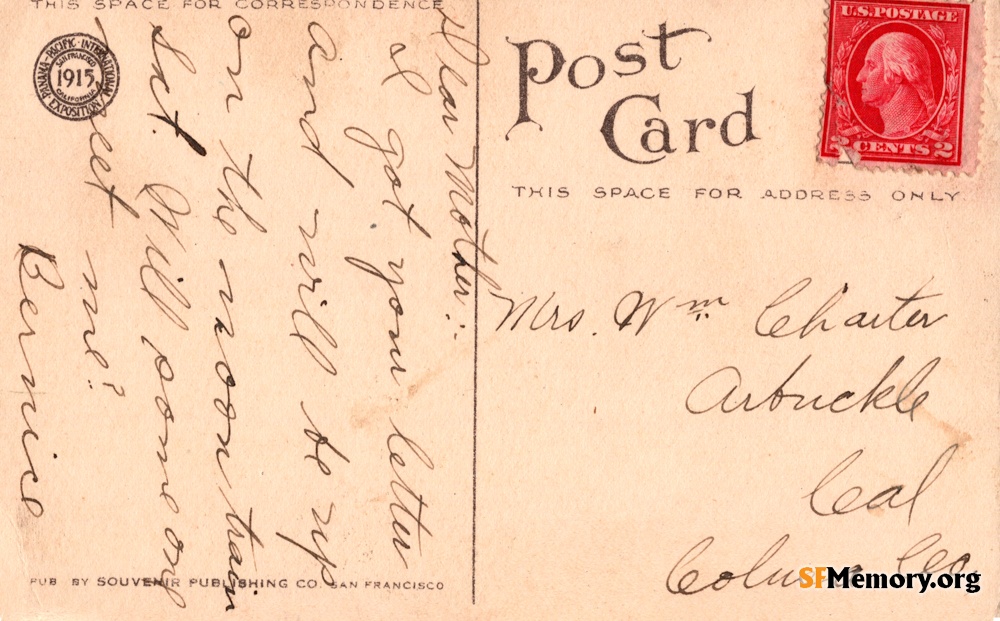 THIS SPACE FOR CORRESPONDENCE
PANAMA-PACIFIC-INTERNATIONAL EXPOSITION
SAN FRANCISCO
1915
CALIFORNIA
Dear Mother:
I got your letter
and will be up
on the noon train
Sat. Will some one
meet me?
Bernice
PUB BY SOUVENIR PUBLISHING CO. SAN FRANCISCO
Post
Card
THIS SPACE FOR ADDRESS ONLY
U.S. POSTAGE
2 CENTS 2
Mrs. Wm Charter
Arbuckle
Cal
Colusa Co.
SFMemory.org